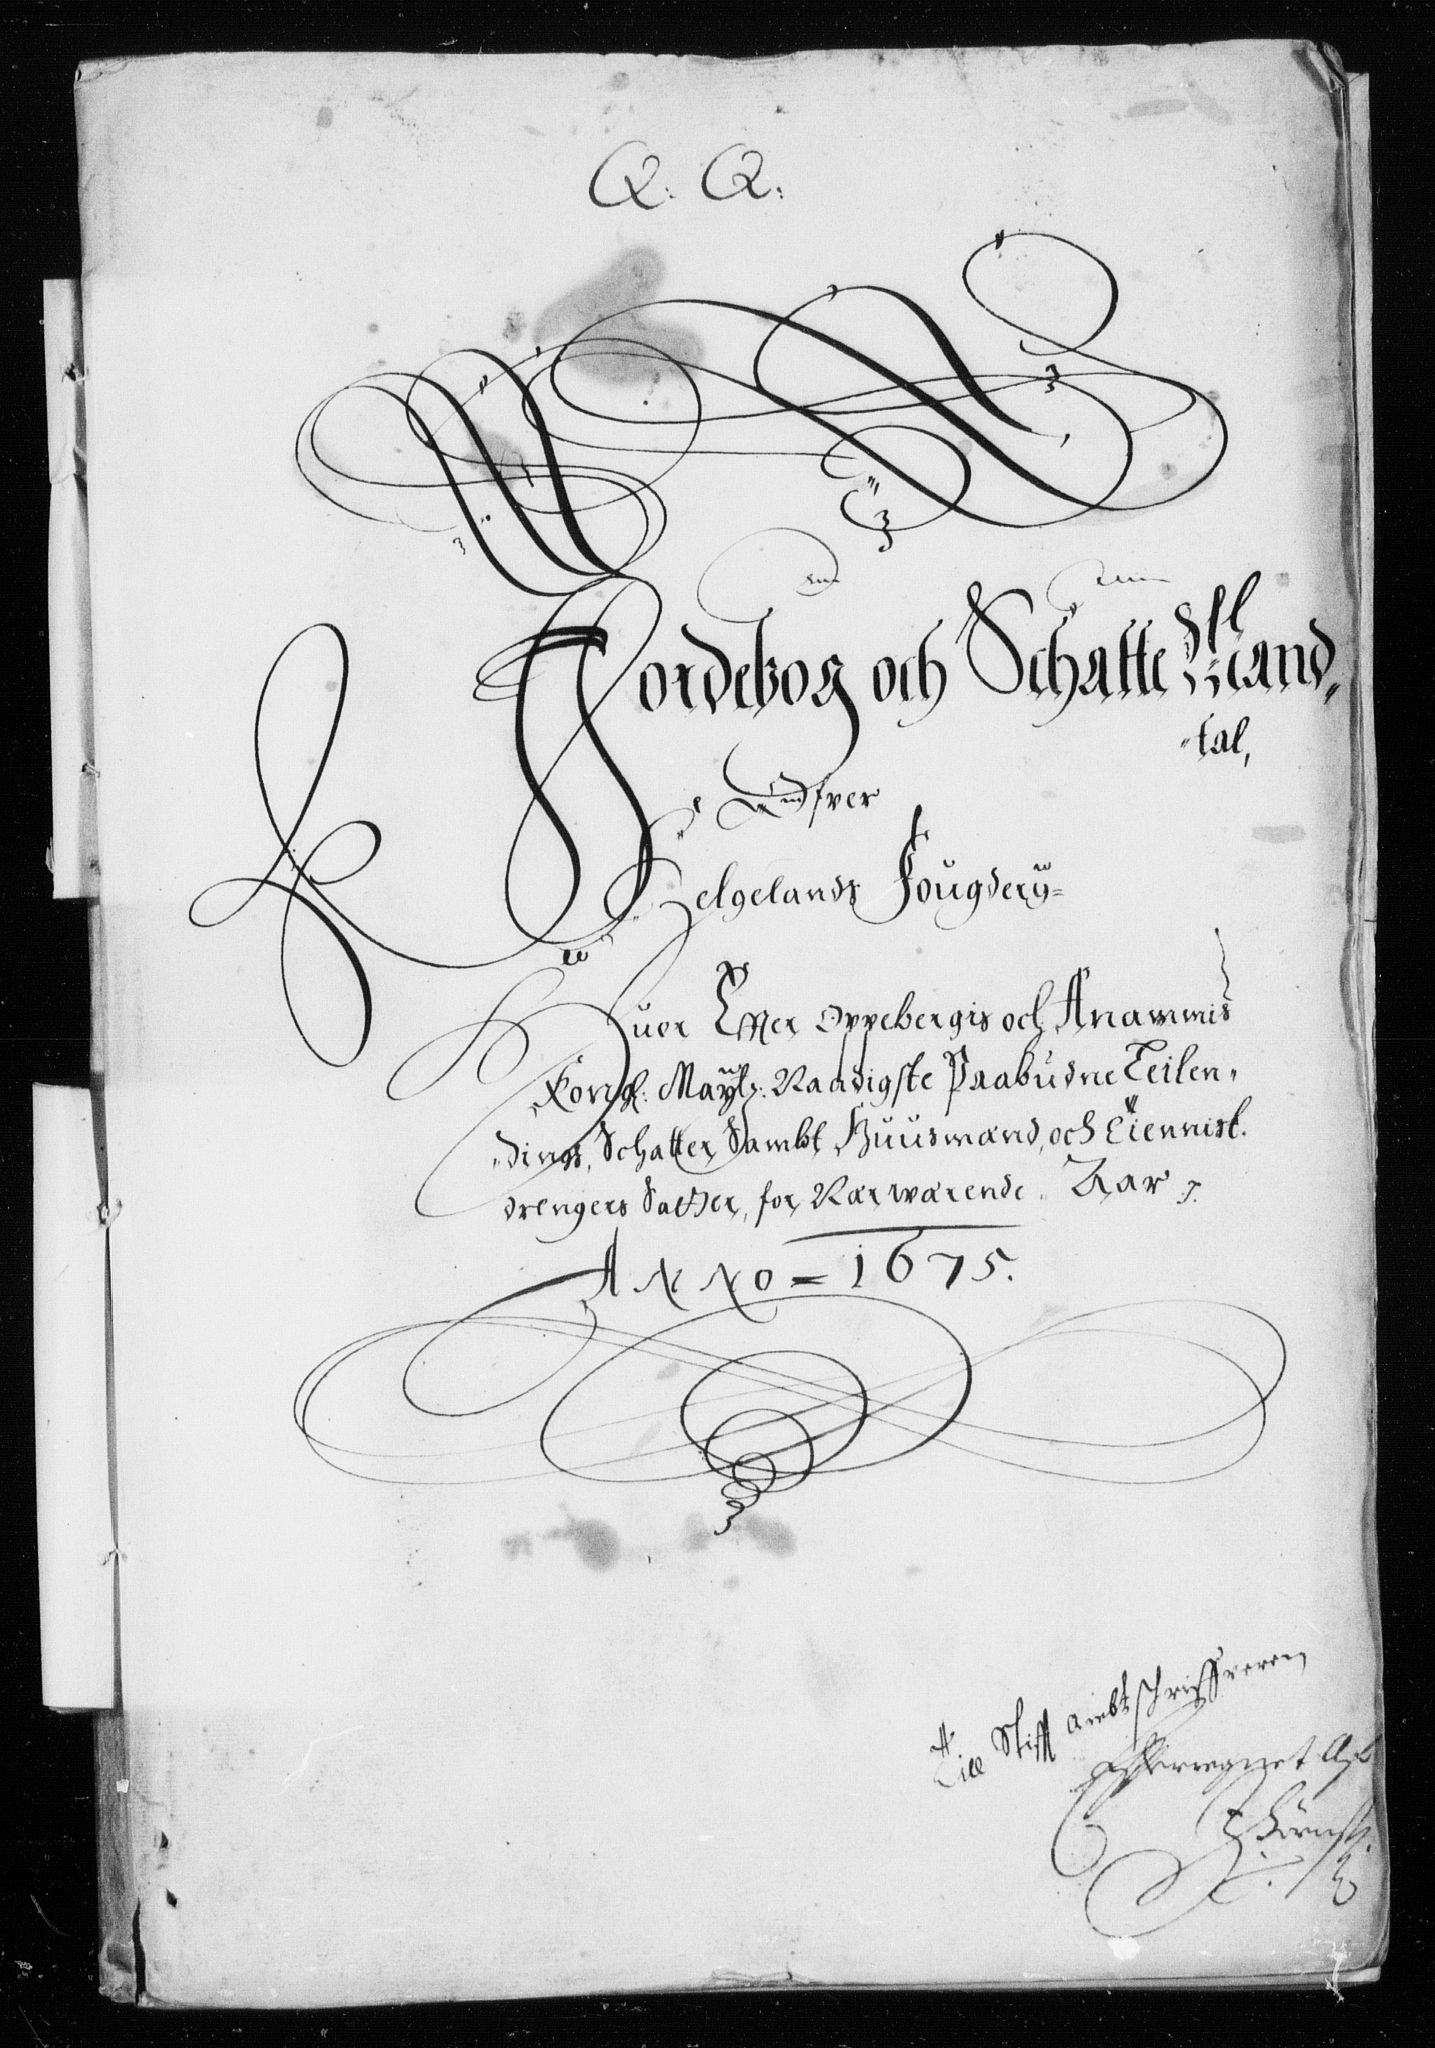 Q: Q:
Jordebog och Schatte Mand„
„tal,
Udfver
Helgelands Fougderÿ=
Huor Effter Oppebergis och Anammis
Kongl: Maÿtz: Naadigste Paabudne Leilen„
„dings, Schatter, Sambt Huusmænd, och Tienniste
drengers Satter, for Nærwærende Aar
ANNO = 1675.
Till Stifft ambtschriffveren